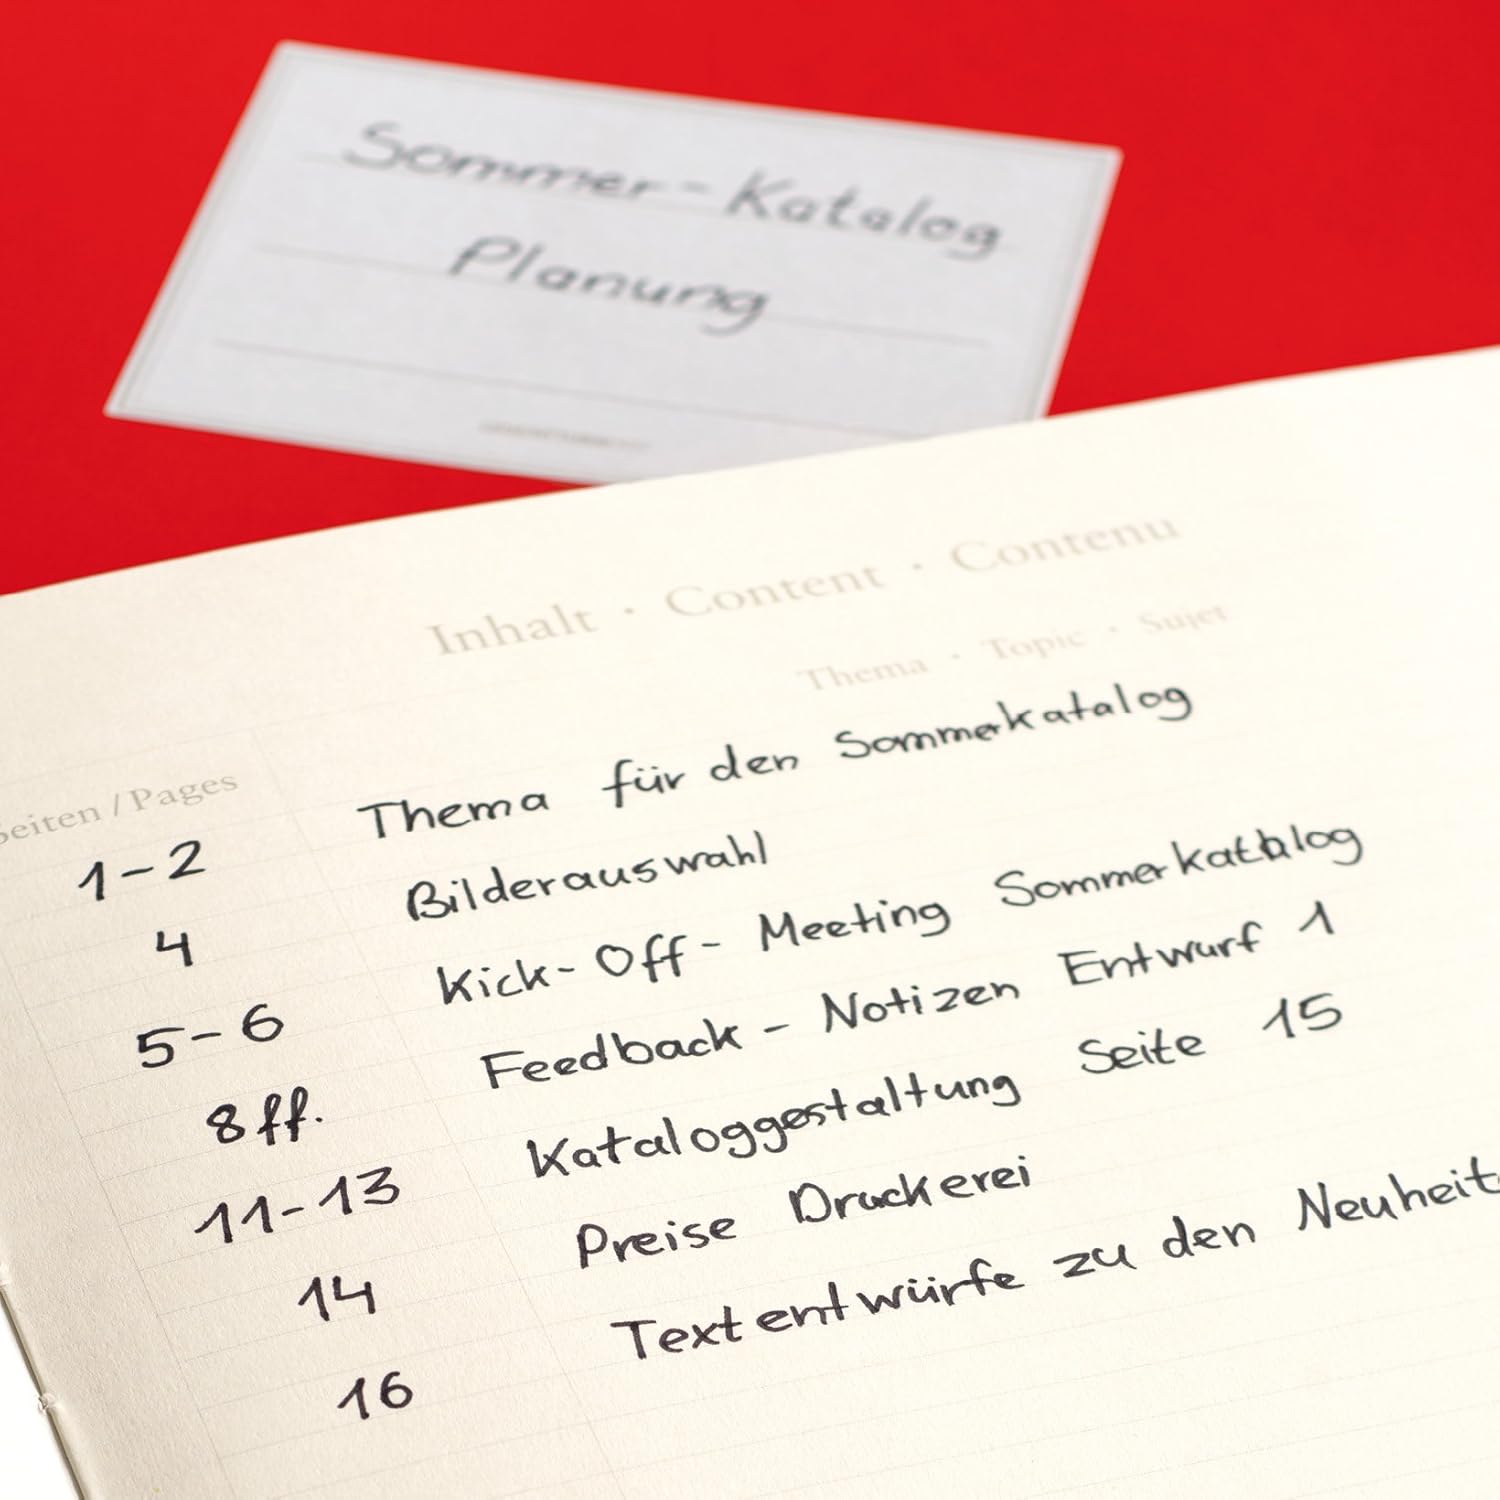 Sommer-Katalog
Planung
Inhalt · Content · Contenu
Thema · Topic · Sujet
Seiten / Pages
1-2 Thema für den Sommerkatalog
4 Bilderauswahl
5-6 Kick-Off-Meeting Sommerkatalog
8ff. Feedback - Notizen Entwurf 1
11-13 Kataloggestaltung Seite 15
14 Preise Druckerei
16 Textentwürfe zu den Neuheit